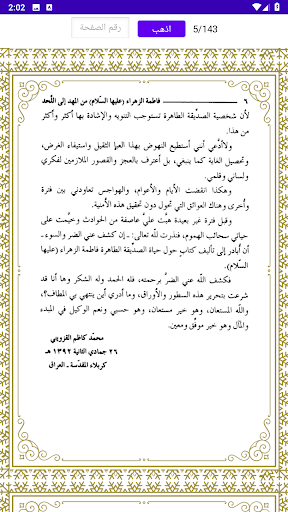 2:02
رقم الصفحة
اذهب
5/143
٦ فاطمة الزهراء (عليها السّلام) من المهد إلى اللّحد
لأن شخصية الصدّيقة الطاهرة تستوجب التنويه والإشادة بها أكثر وأكثر
من هذا.
ولا أدّعي أنني أستطيع النهوض بهذا العبإ الثقيل واستيفاء الغرض،
وتحصيل الغاية كما ينبغي، بل أعترف بالعجز والقصور الملازمين لفكري
ولساني وقلمي.
وهكذا انقضت الأيام والأعوام، والهواجس تعاودني بين فترة
وأخرى وهناك العوائق التي تحول دون تحقيق هذه الأمنية.
وقبل فترة غير بعيدة هبّت عليّ عاصفة من الحوادث وخيّمت على
حياتي سحائب الهموم، فنذرت للّه تعالى: ـ إن كشف عني الضر والسوء ـ
أن أبادر إلى تأليف كتاب حول حياة الصدّيقة الطاهرة فاطمة الزهراء (عليها
السّلام).
فكشف اللّه عني الضرّ برحمته، فله الحمد وله الشكر وها أنا قد
شرعت بتحرير هذه السطور والأوراق، وما أدري أين ينتهي بي المطاف؟،
واللّه المستعان، وهو خير مستعان، وهو حسبي ونعم الوكيل في المبدء
والمآل وهو خير موفّق ومعين.
محمّد كاظم القزويني
٢٦ جمادي الثانية ١٣٩٢ هـ
كربلاء المقدّسة ـ العراق